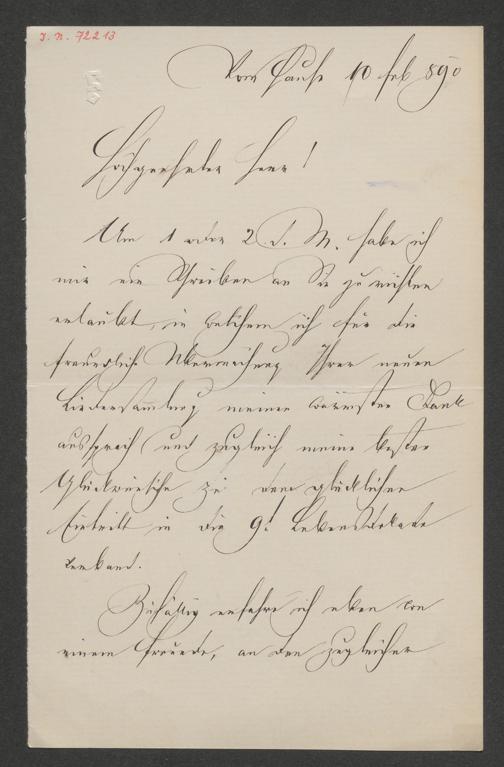 J. N. 72213
Vom Hause 10 feb 890
Hochgeehrter Herr!
Am 1 oder 2 d. M. habe ich
mir ein Schreiben an Sie zu richten
erlaubt, in welchem ich für die
freundliche Übersendung Ihrer neuen
Liedersammlung meinen wärmsten Dank
aussprach und zugleich meine besten
Glückwünsche zu dem glücklichen
Eintritt in die 9t Lebensdekade
verband.
Zufällig erfahre ich eben von
einem Freunde, an den zugleicher